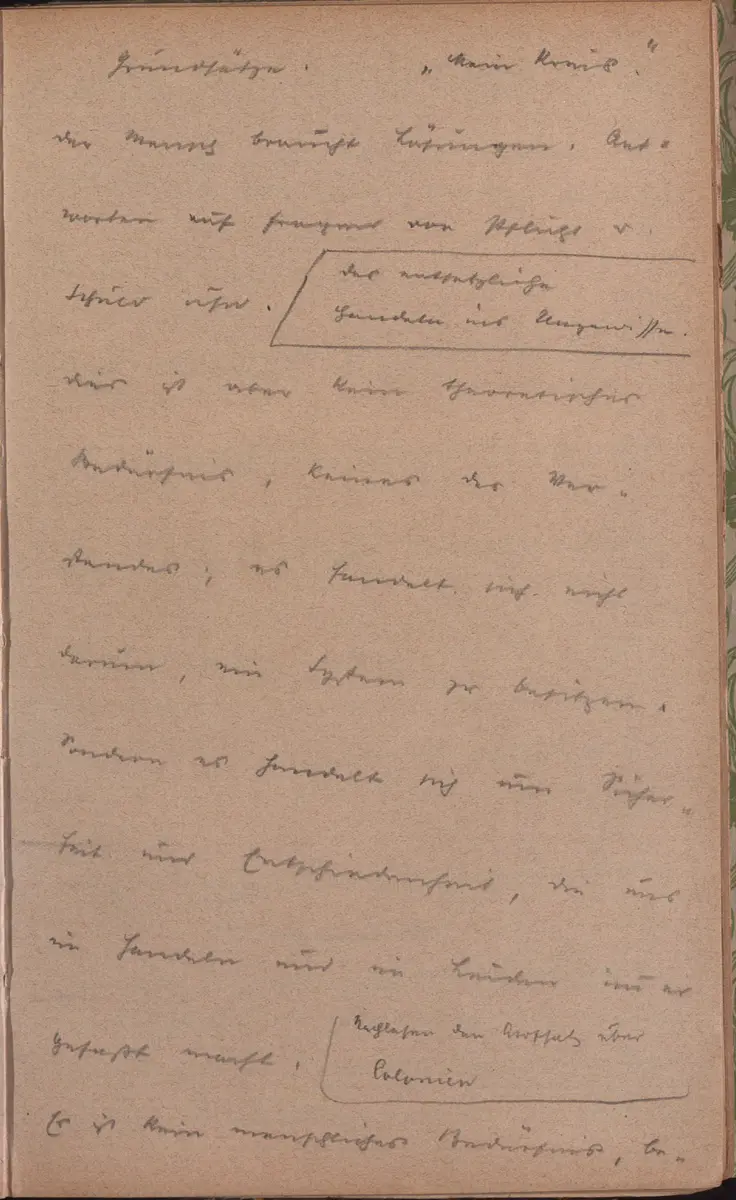 Grundsätze. „Mein Kreis."
der Mensch braucht Lösungen. Ant=
worten auf Fragen von Pflicht u.
Schuld usw.
das entsetzliche
Handeln ins Ungewisse.
dies ist aber kein theoretisches
Bedürfnis, keines des Ver=
standes; es handelt sich nicht
darum, ein System zu besitzen.
Sondern es handelt sich um Sicher=
heit und Entschiedenheit, die uns
im Handeln und im Leiden
gefaßt macht.
Nachlesen den Aufsatz über
Colonien
Es ist kein menschliches Bedürfnis, be=